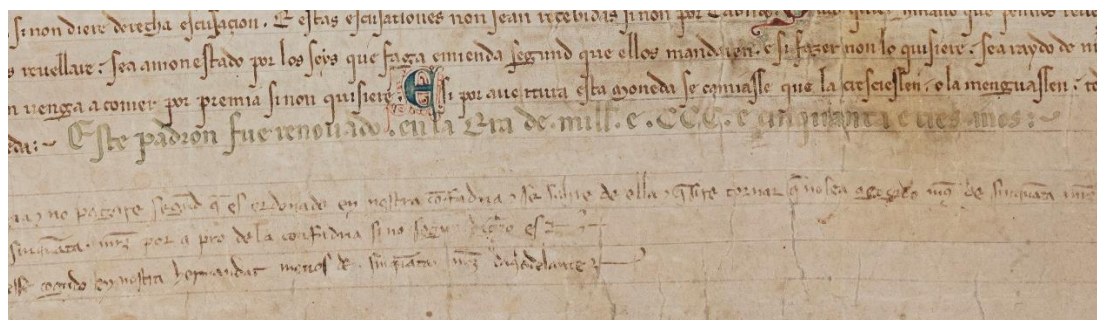 si non diere derecha escusacion. E estas escusationes non sean recebidas si non por
s reuellare: sea amonestado por los seys que faga emienda segund que ellos mandaren. e si fazer non lo quisiere: sea raydo de
n venga a comer por premia si non quisiere. E si por auentura esta moneda se camiasse que la cresciessen: o la menguassen:
da:~ Este padron fue renouado. en la Era de. mill. e. CCC. e cinquanta e tres anos:~
no pagare segund q̃ es ordenado en nostra confadria, se saliere de ella, tornar q̃ no sea de sinquãta
sinquãta. mrs̃ por a pro de la confadria si no es
cogido en nostra hermandat menos de. sinquãta. mrs̃ daqui adelante